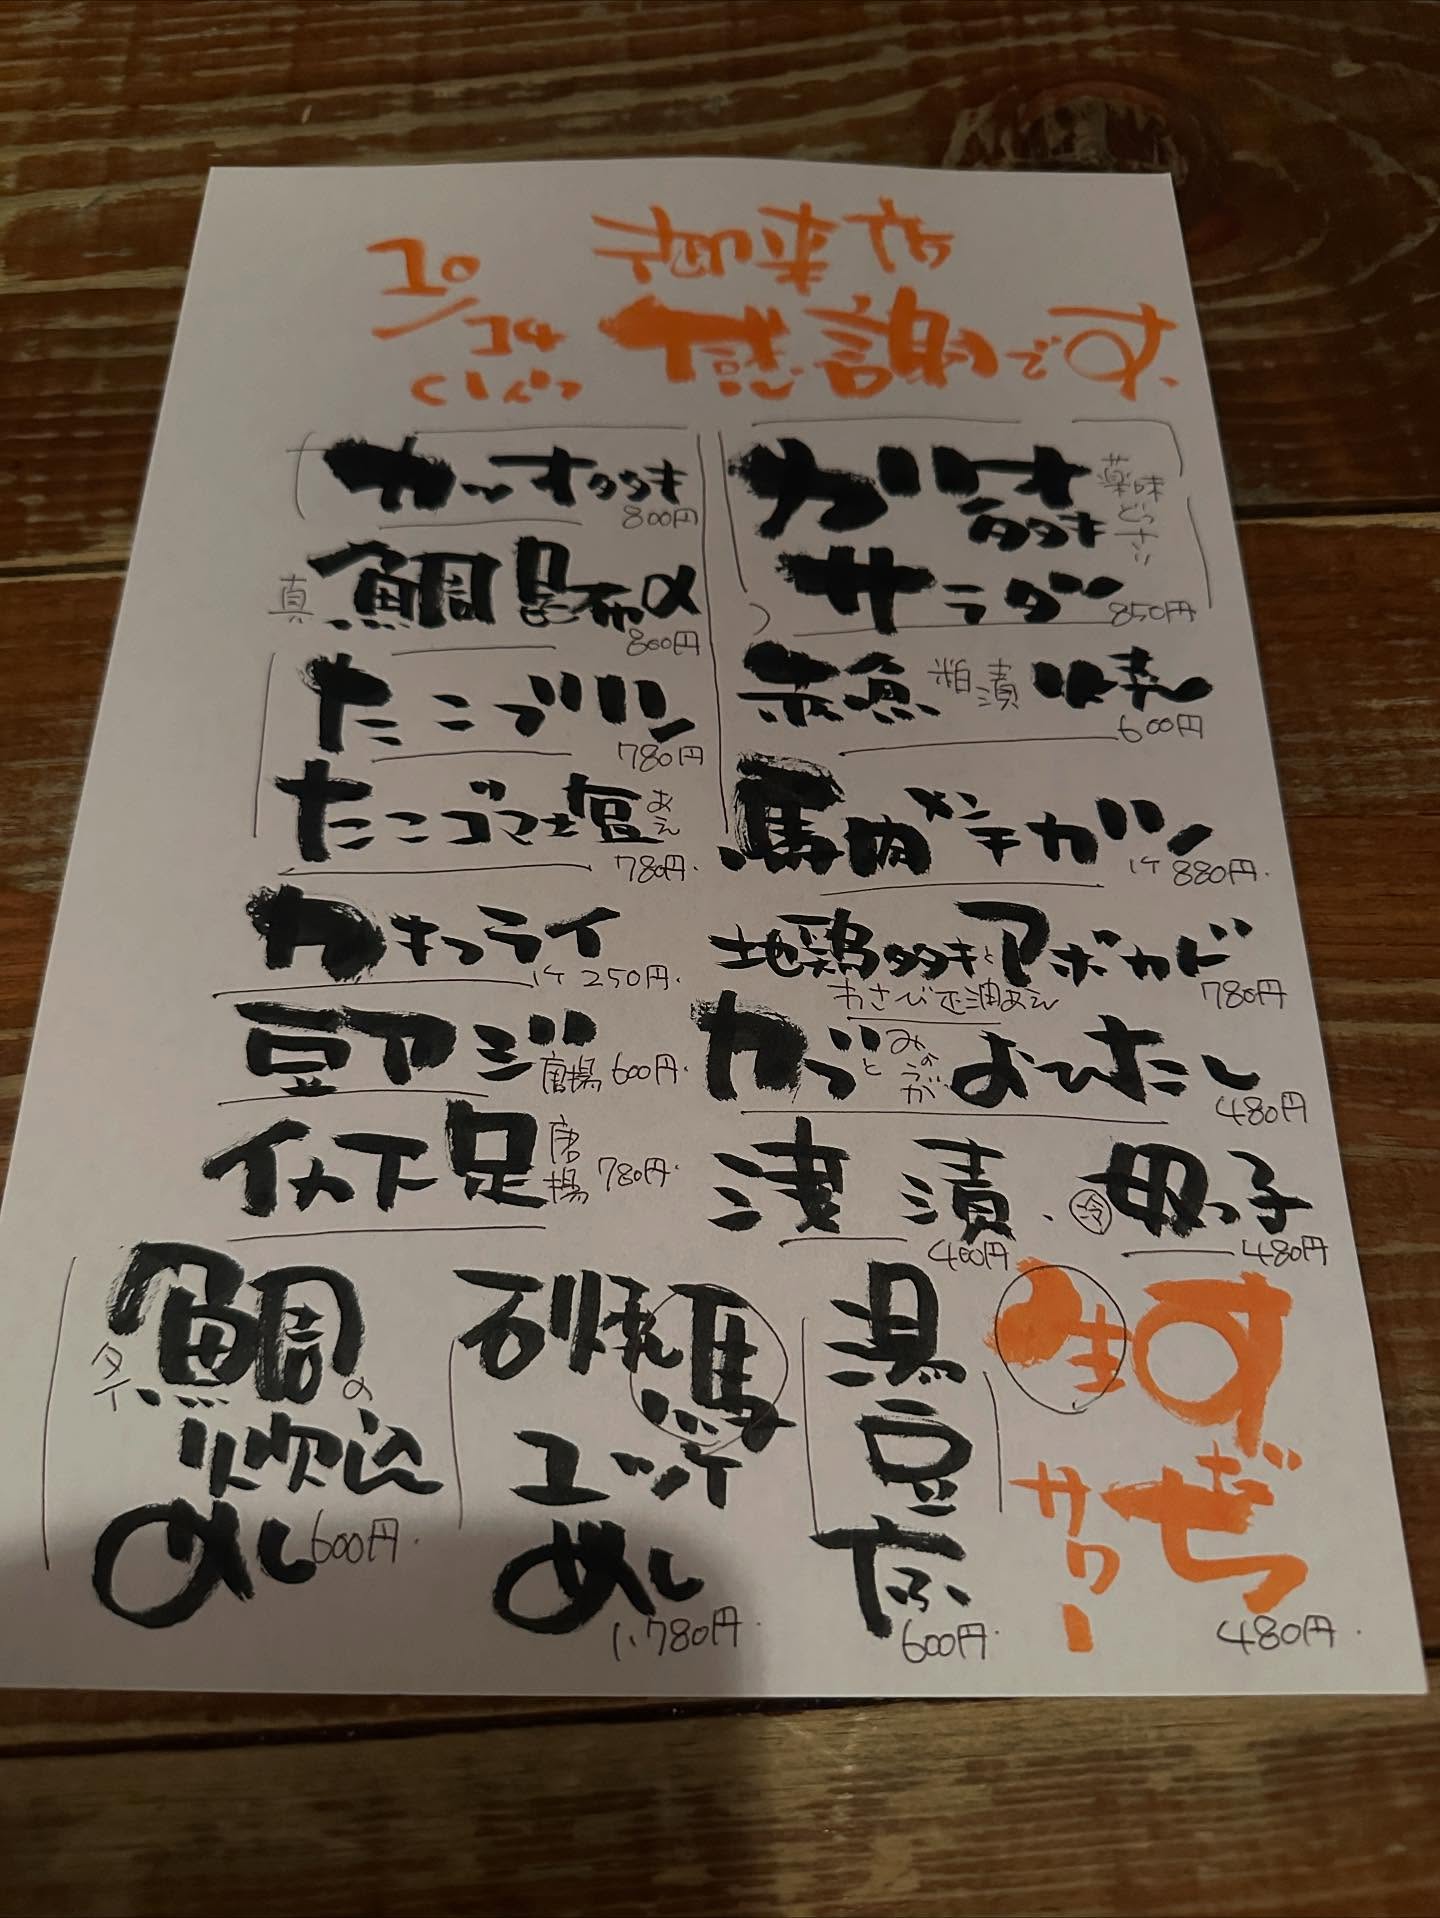 御来店
感謝です。
10/24
カツオタタキ
800円
真鯛昆布〆
800円
たこブツ
780円
たこゴマ塩あえ
780円
カキフライ
1ケ 250円
豆アジ唐揚 600円
イカ下足唐揚 780円
カツオタタキサラダ
薬味どっさり
850円
赤魚粕漬焼
600円
馬肉メンチカツ
1ケ 880円
地鶏タタキとアボカド
わさび正油あえ
780円
かぶとみょうがおひたし
480円
浅漬
400円
冷奴っ子
480円
鯛の炊込めし 600円
タイ
石焼馬ユッケめし
1,780円
湯豆腐
600円
生すだちサワー
480円